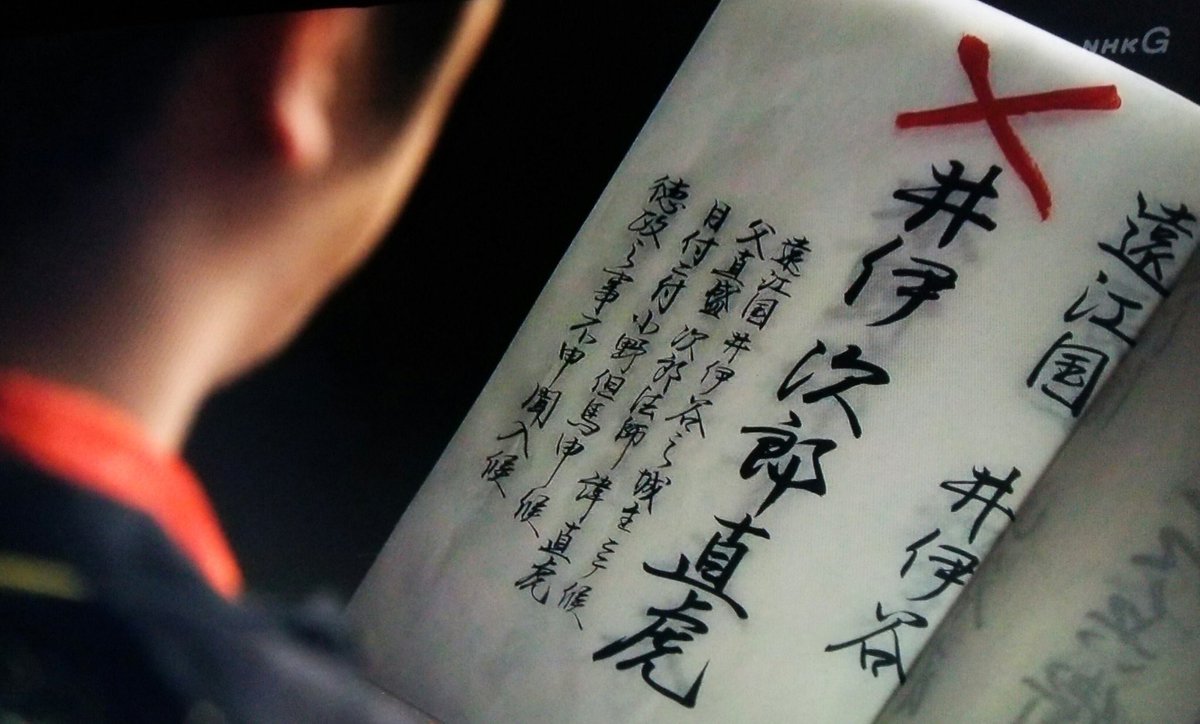 NHKG
遠江国 井伊谷
井伊次郎直虎
遠江国 井伊谷之城主ニ候
父直盛 次郎法師 諱直虎
目付ニ付小野但馬申候
徳政之事不申聞入候